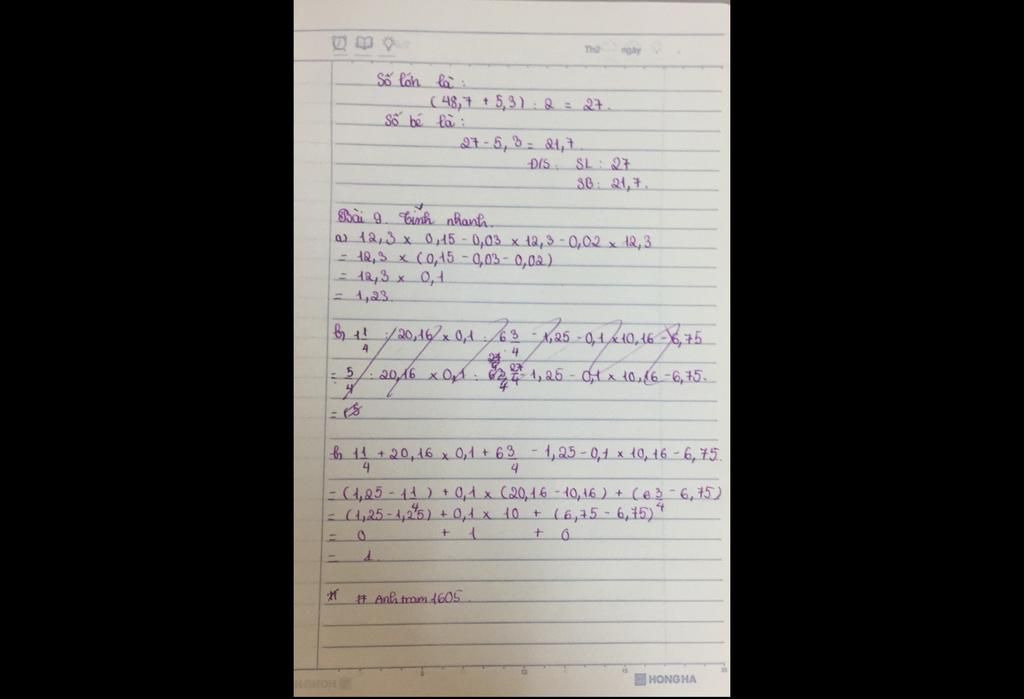 Thứ ngày
Số lớn là:
(48,7 + 5,3) : 2 = 27.
Số bé là:
27 - 5,3 = 21,7.
Đ/S: SL: 27
SB: 21,7.
Bài 9. Tính nhanh.
a) 12,3 x 0,15 - 0,03 x 12,3 - 0,02 x 12,3
= 12,3 x (0,15 - 0,03 - 0,02)
= 12,3 x 0,1
= 1,23.
b) 1 1/4 : 20,16 x 0,1 : 6 3/4 - 1,25 - 0,1 x 10,16 - 6,75
= 5/4 : 20,16 x 0,1 : 27/4 - 1,25 - 0,1 x 10,16 - 6,75.
=
b) 1 1/4 + 20,16 x 0,1 + 6 3/4 - 1,25 - 0,1 x 10,16 - 6,75.
= (1,25 - 1 1/4) + 0,1 x (20,16 - 10,16) + (6 3/4 - 6,75)
= (1,25 - 1,25) + 0,1 x 10 + (6,75 - 6,75)
= 0 + 1 + 0
= 1.
# Anhtram1605.
HONG HA